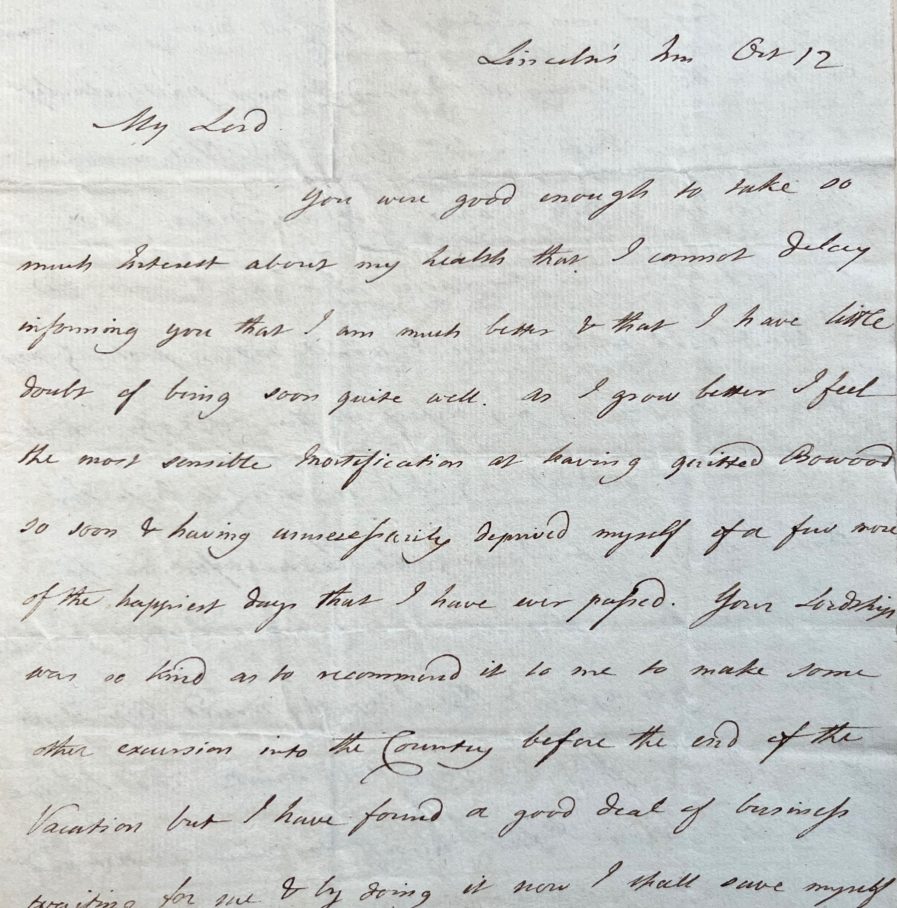 Lincoln's Inn Oct 12
My Lord
You were good enough to take so
much Interest about my health that I cannot delay
informing you that I am much better & that I have little
doubt of being soon quite well. as I grow better I feel
the most sensible mortification at having quitted Bowood
so soon & having unnecessarily deprived myself of a few more
of the happiest days that I have ever passed. Your Lordship
was so kind as to recommend it to me to make some
other excursion into the Country before the end of the
Vacation but I have found a good deal of business
waiting for me & by doing it now I shall save myself